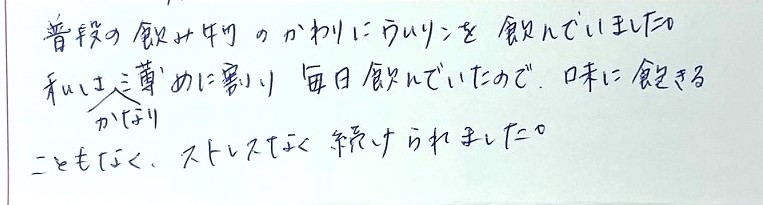 普段の飲み物のかわりにウルリンを飲んでいました。
私はかなり薄めに割り毎日飲んでいたので、味に飽きる
こともなく、ストレスなく続けられました。